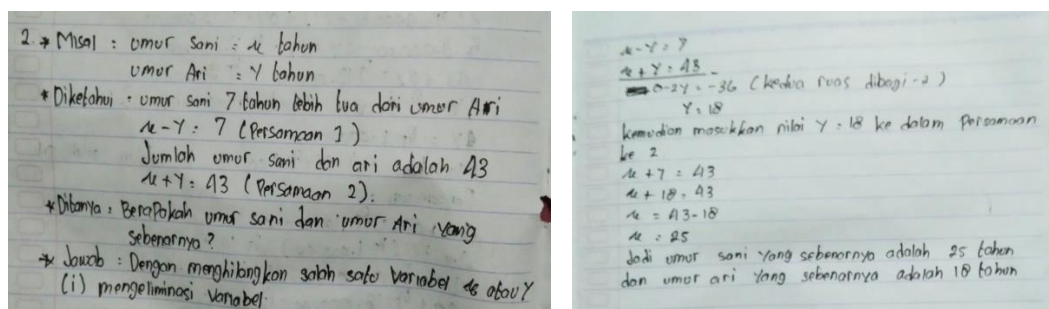 2. * Misal : umur Sani = x tahun
umur Ari = Y tahun
* Diketahui : umur sani 7 tahun lebih tua dari umur Ari
x - Y = 7 (Persamaan 1)
Jumlah umur sani dan ari adalah 43
x + Y = 43 (Persamaan 2).
* Ditanya : Berapakah umur sani dan umur Ari yang
sebenarnya ?
* Jawab : Dengan menghilangkan salah satu Variabel x atau Y
(i) mengeliminasi Variabel
x - Y = 7
x + Y = 43 -
0 - 2Y = -36 (kedua ruas dibagi -2)
Y = 18
kemudian masukkan nilai Y = 18 ke dalam Persamaan
ke 2
x + 7 = 43
x + 18 = 43
x = 43 - 18
x = 25
Jadi umur sani yang sebenarnya adalah 25 tahun
dan umur ari yang sebenarnya adalah 18 tahun